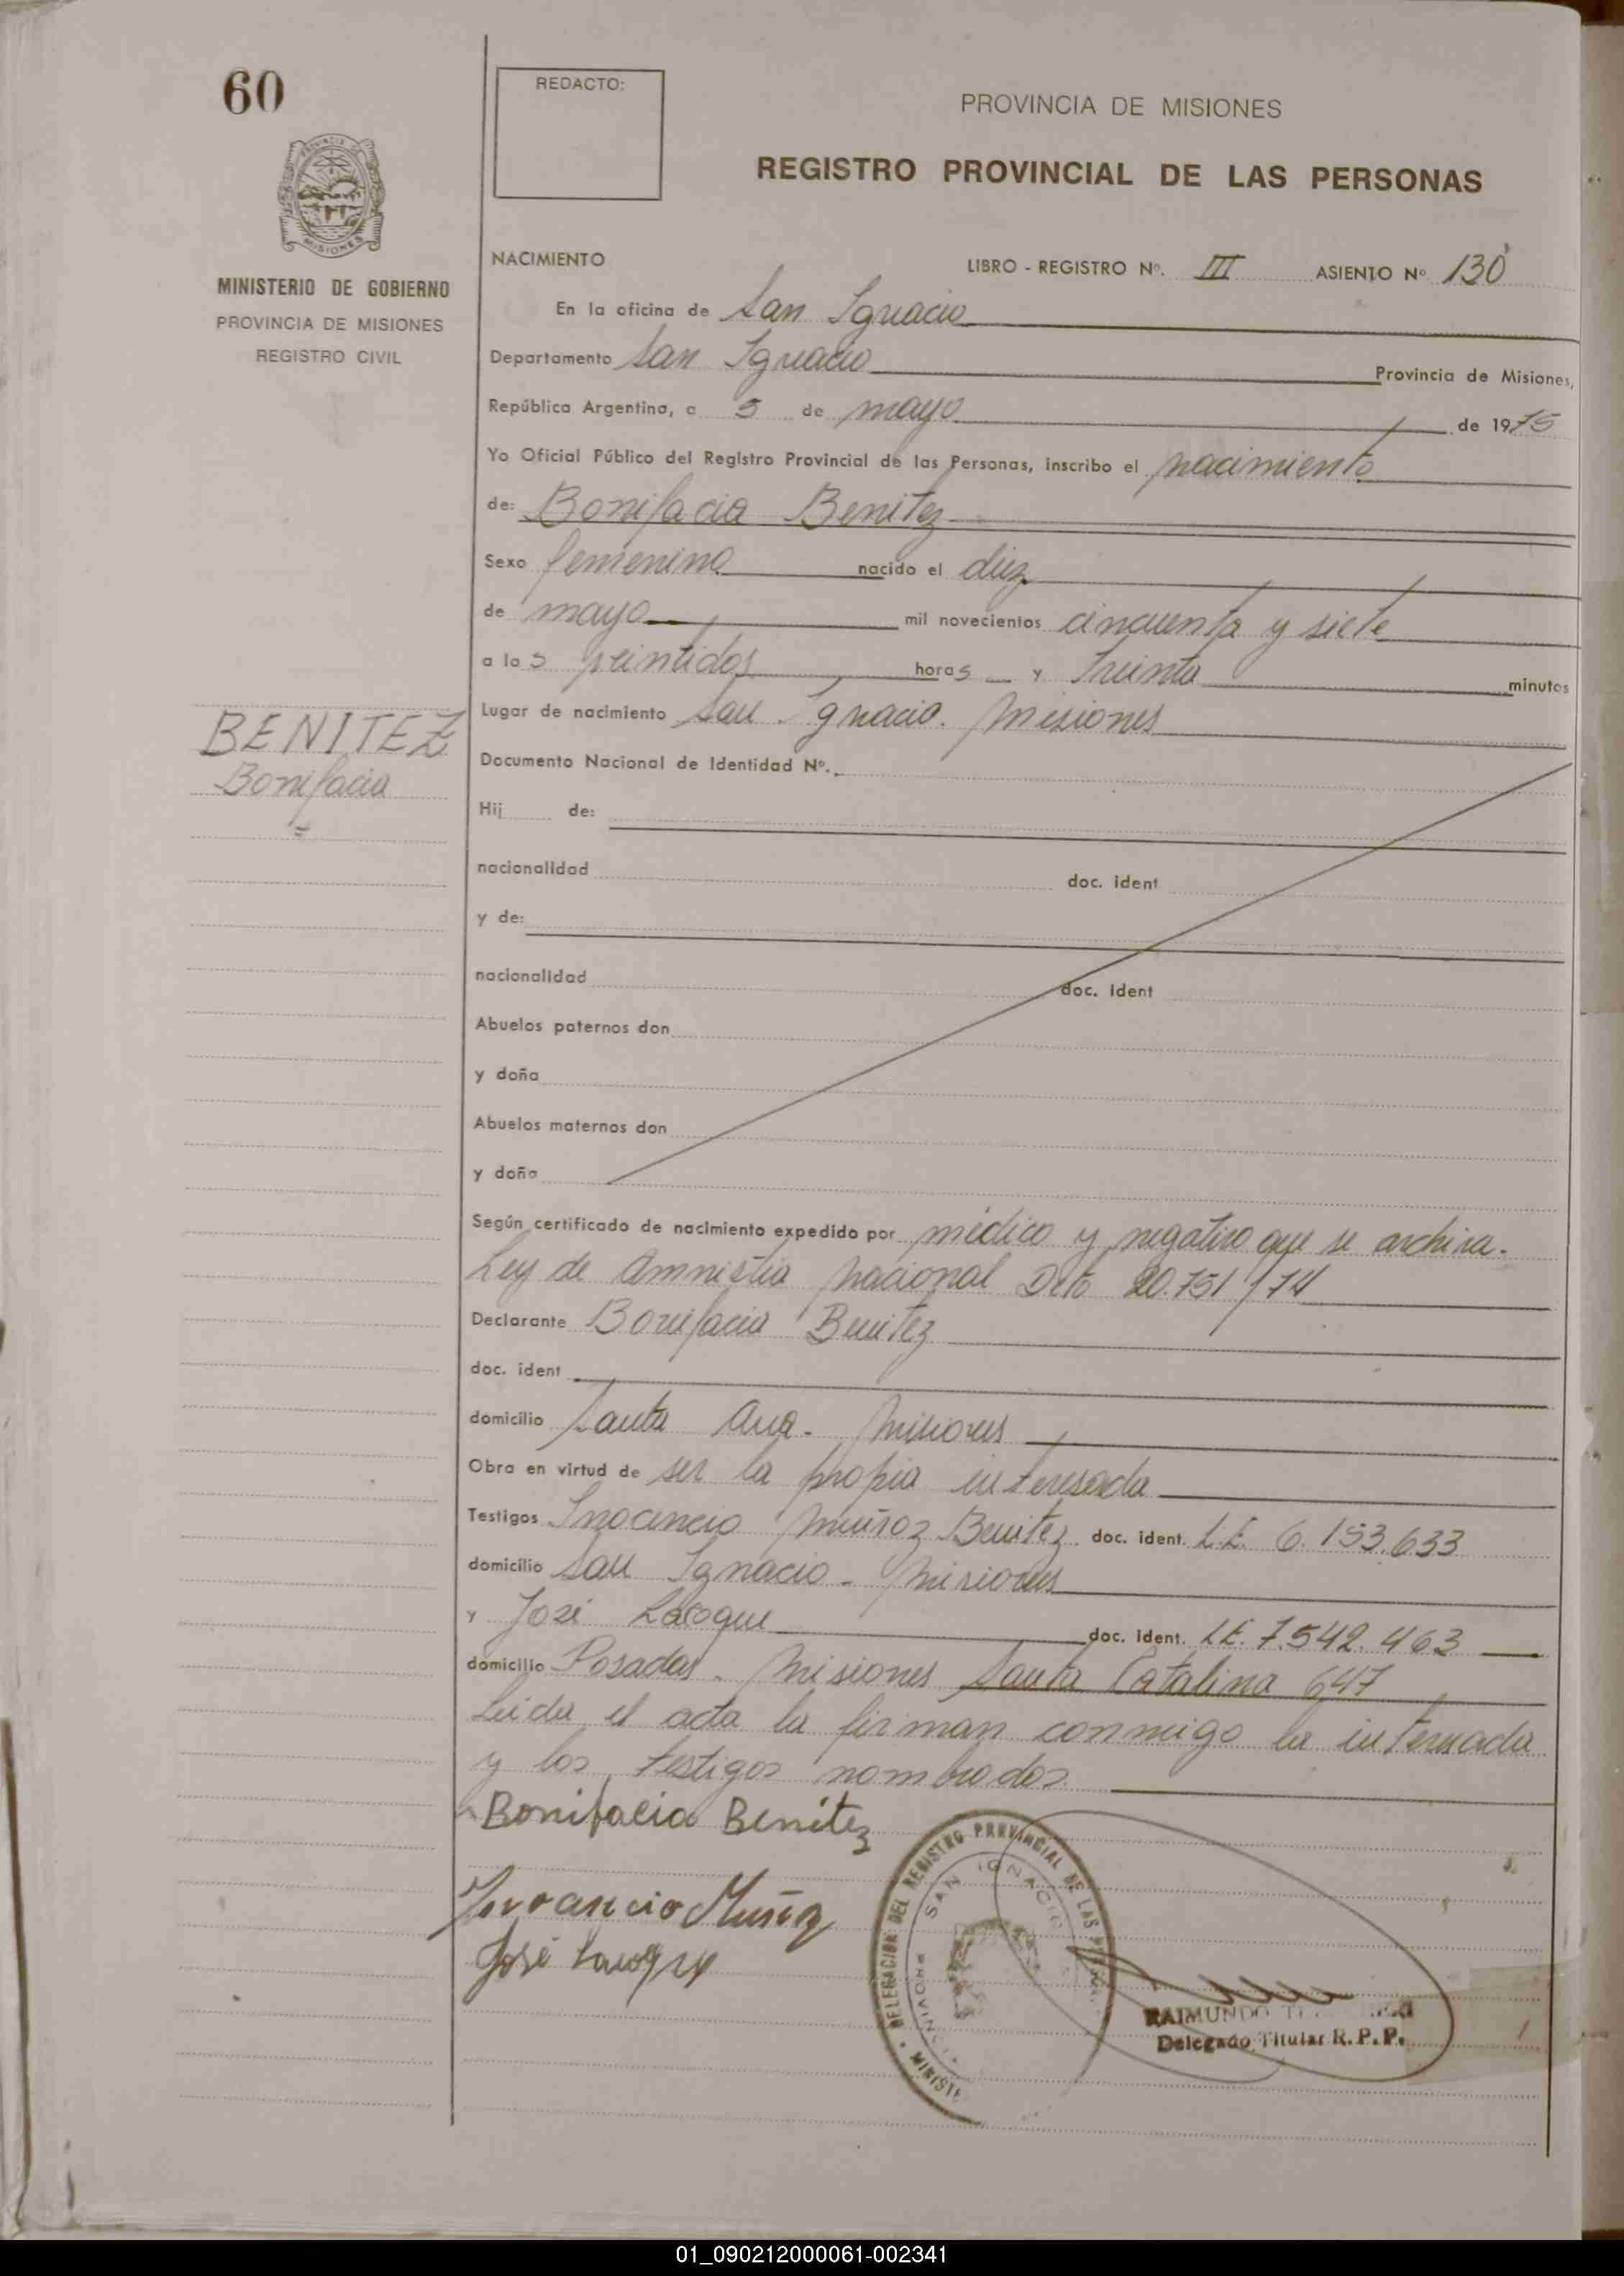 60
REDACTO:
PROVINCIA DE MISIONES
REGISTRO PROVINCIAL DE LAS PERSONAS
MINISTERIO DE GOBIERNO
PROVINCIA DE MISIONES
REGISTRO CIVIL
NACIMIENTO LIBRO - REGISTRO Nº. III ASIENTO Nº 130
En la oficina de San Ignacio
Departamento San Ignacio Provincia de Misiones,
República Argentina, a 5 de mayo de 1975
Yo Oficial Público del Registro Provincial de las Personas, inscribo el nacimiento
de: Bonifacia Benitez
Sexo femenino nacido el diez
de mayo mil novecientos cincuenta y siete
a las veintidos horas y treinta minutos
Lugar de nacimiento San Ignacio. Misiones
BENITEZ
Bonifacia
Documento Nacional de Identidad Nº.
Hij de:
nacionalidad doc. ident
y de:
nacionalidad doc. ident
Abuelos paternos don
y doña
Abuelos maternos don
y doña
Según certificado de nacimiento expedido por médico y negativo que se archiva.
Ley de Amnistia Nacional Dcto 20.751/74
Declarante Bonifacia Benitez
doc. ident
domicilio Santa Ana. Misiones
Obra en virtud de ser la propia interesada
Testigos Inocencio Muñoz Benitez. doc. ident. L.E. 6.153.633
domicilio San Ignacio - Misiones
y José Laroque doc. ident. LE. 7.542.463
domicilio Posadas. Misiones Santa Catalina 647
Leida el acta la firman conmigo la interesada
y los testigos nombrados.
Bonifacia Benitez
Inocencio Muñoz
José Laroque
DELEGACION DEL REGISTRO PROVINCIAL DE LAS
SAN IGNACIO
RAIMUNDO
Delegado Titular R.P.P.
01_090212000061-002341